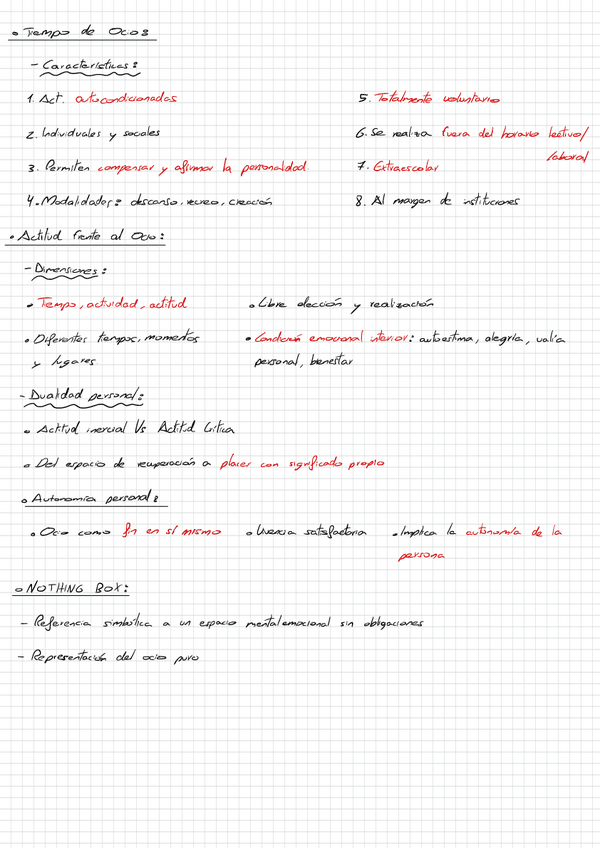 • Tiempo de Ocio:
- Características:
1. Act. autocondicionadas
5. Totalmente voluntario
2. Individuales y sociales
6. Se realiza fuera del horario lectivo/
laboral
3. Permiten compensar y afirmar la personalidad.
7. Extraescolar
4. Modalidades: descanso, recreo, creación
8. Al margen de instituciones
• Actitud frente al Ocio:
- Dimensiones:
• Tiempo, actividad, actitud
• Libre elección y realización
• Diferentes tiempos, momentos
y lugares
• Condición emocional interior: autoestima, alegría, valía
personal, bienestar
- Dualidad personal:
• Actitud inercial Vs Actitud Crítica
• Del espacio de recuperación a placer con significado propio
• Autonomía personal:
• Ocio como fin en sí mismo
• Vivencia satisfactoria
• Implica la autonomía de la
persona
• NOTHING BOX:
- Referencia simbólica a un espacio mental emocional sin obligaciones
- Representación del ocio puro